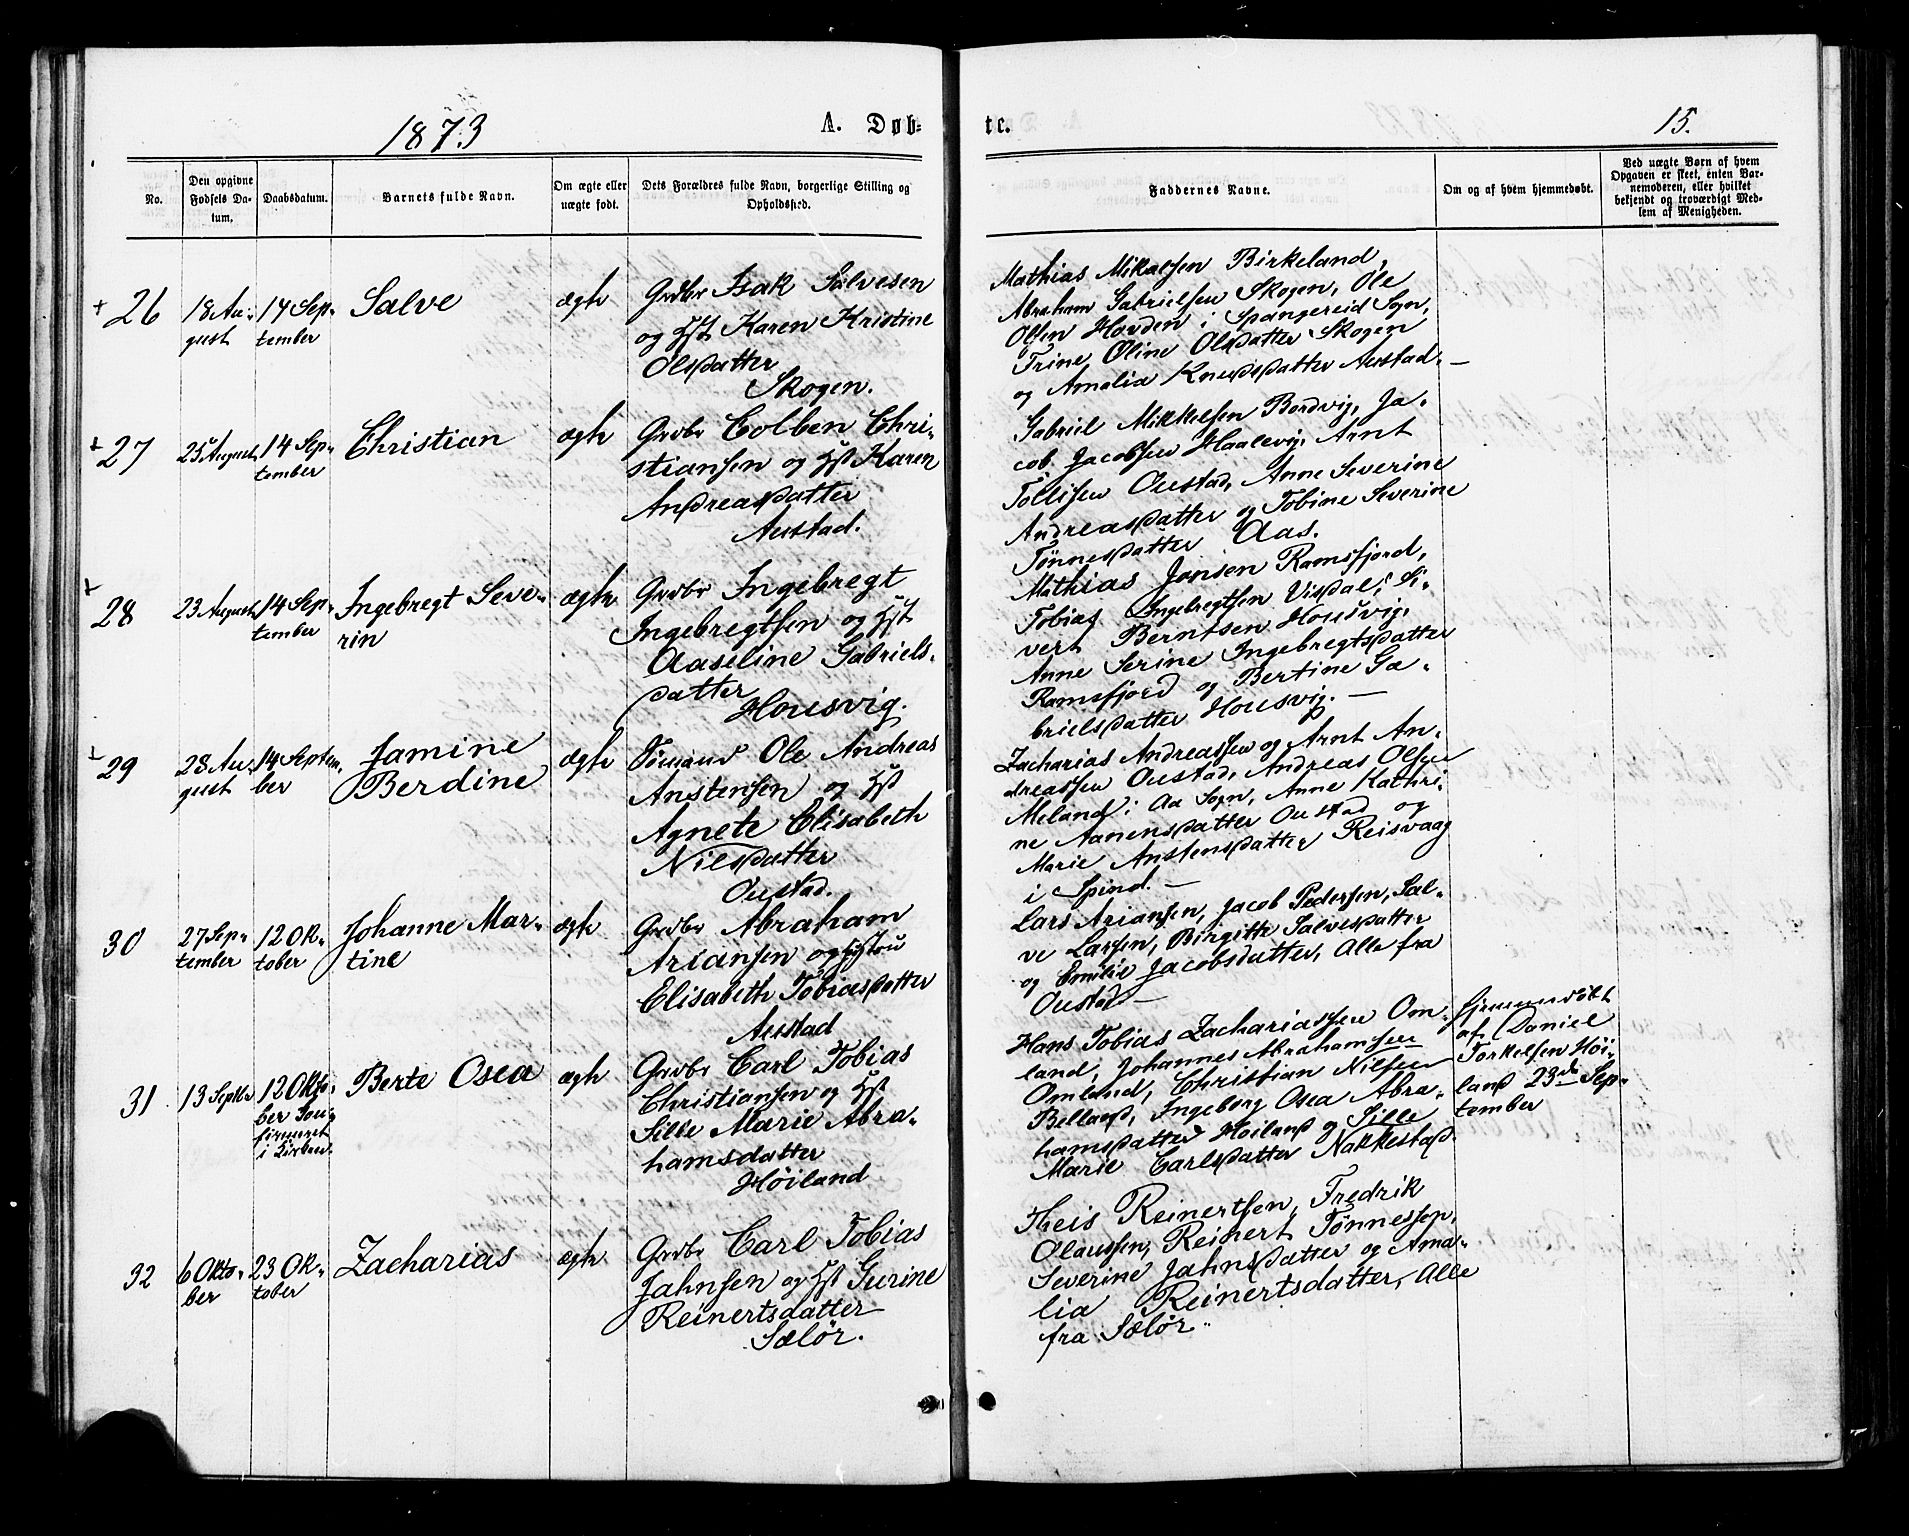 1873
A. Døb-
te.
15.
No.
Den opgivne
Fødsels Da-
tum.
Daabsdatum.
Barnets fulde Navn.
Om ægte eller
uægte født.
Dets Forældres fulde Navn, borgerlige Stilling og
Opholdssted.
Faddernes Navne.
Om og af hvem hjemmedøbt.
Ved uægte Børn af hvem
Opgaven er skeet, enten Bar-
nemoderen, eller hvilket
bekjendt og troværdigt Med-
lem af Menigheden.
+ 26
18 Au-
gust
14 Sep-
tember
Salve
ægte
Grdbr Isak Salvesen
og Hst Karen Kristine
Olsdatter
Skogen.
Mathias Mikalsen Birkeland,
Abraham Gabrielsen Skogen, Ole
Olsen Hovden i Spangereid Sogn,
Trine Oline Olsdatter Skogen
og Amalia Knudsdatter Austad. —
+ 27
25 August
14 Sep-
tember
Christian
ægte
Grdbr Colben Chri-
stiansen og Hst Karen
Andreasdatter
Austad.
Gabriel Mikkelsen Bordvig, Ja-
cob Jacobsen Haalevig, Arnt
Tollisen Oustad, Anne Severine
Andreasdatter og Tobine Severine
Tønnesdatter Aas.
+ 28
23 August
14 Sep-
tember
Ingebregt Seve-
rin
ægte
Grdbr Ingebregt
Ingebregtsen og Hst
Aaseline Gabriels-
datter
Housvig.
Mathias Jansen Ramsfjord,
Tobias Ingebregtsen Visdal, Si-
vert Berntsen Housvig,
Anne Serine Ingebregtsdatter
Ramsfjord og Bertine Ga-
brielsdatter Housvig. —
+ 29
28 Au-
gust
14 Septem-
ber
Jamine
Berdine
ægte
Sømand Ole Andreas
Anstensen og Hst
Agnete Elisabeth
Nilsdatter
Oustad.
Zacharias Andreassen og Arnt An-
dreassen Oustad, Andreas Olsen
Meland i Aa Sogn, Anne Kathri-
ne Aanensdatter Oustad og
Marie Anstensdatter Reisvaag
i Spind. —
30
27 Sep-
tember
12 Ok-
tober
Johanne Mar-
tine
ægte
Grdbr Abraham
Ariansen og Hustru
Elisabeth Tobiasdatter
Austad
Lars Ariansen, Jacob Pedersen, Sal-
ve Larsen, Birgitte Salvesdatter
og Emilie Jacobsdatter, Alle fra
Oustad —
31
13 Septbr
12 Okto-
ber Con-
firmeret
i Kirken.
Berte Osea
ægte
Grdbr Carl Tobias
Christiansen og Hst
Sille Marie Abra-
hamsdatter
Høiland
Hans Tobias Zachariassen Om-
land, Johannes Abrahamsen
Omland, Christian Nilsen
Belland, Ingeborg Osea Abra-
hamsdatter Høiland og Sille
Marie Carlsdatter Nakkestad.
Hjemmedøbt
af Daniel
Torkelsen Høi-
land 23de Sep-
tember
32
6 Okto-
ber
23 Ok-
tober
Zacharias
ægte
Grdbr Carl Tobias
Jahnsen og Hst Gurine
Reinertsdatter
Sælør.
Theis Reinertsen, Fredrik
Olaussen, Reinert Tønnessen,
Severine Jahnsdatter og Ama-
lia Reinertsdatter, Alle
fra Sælør.